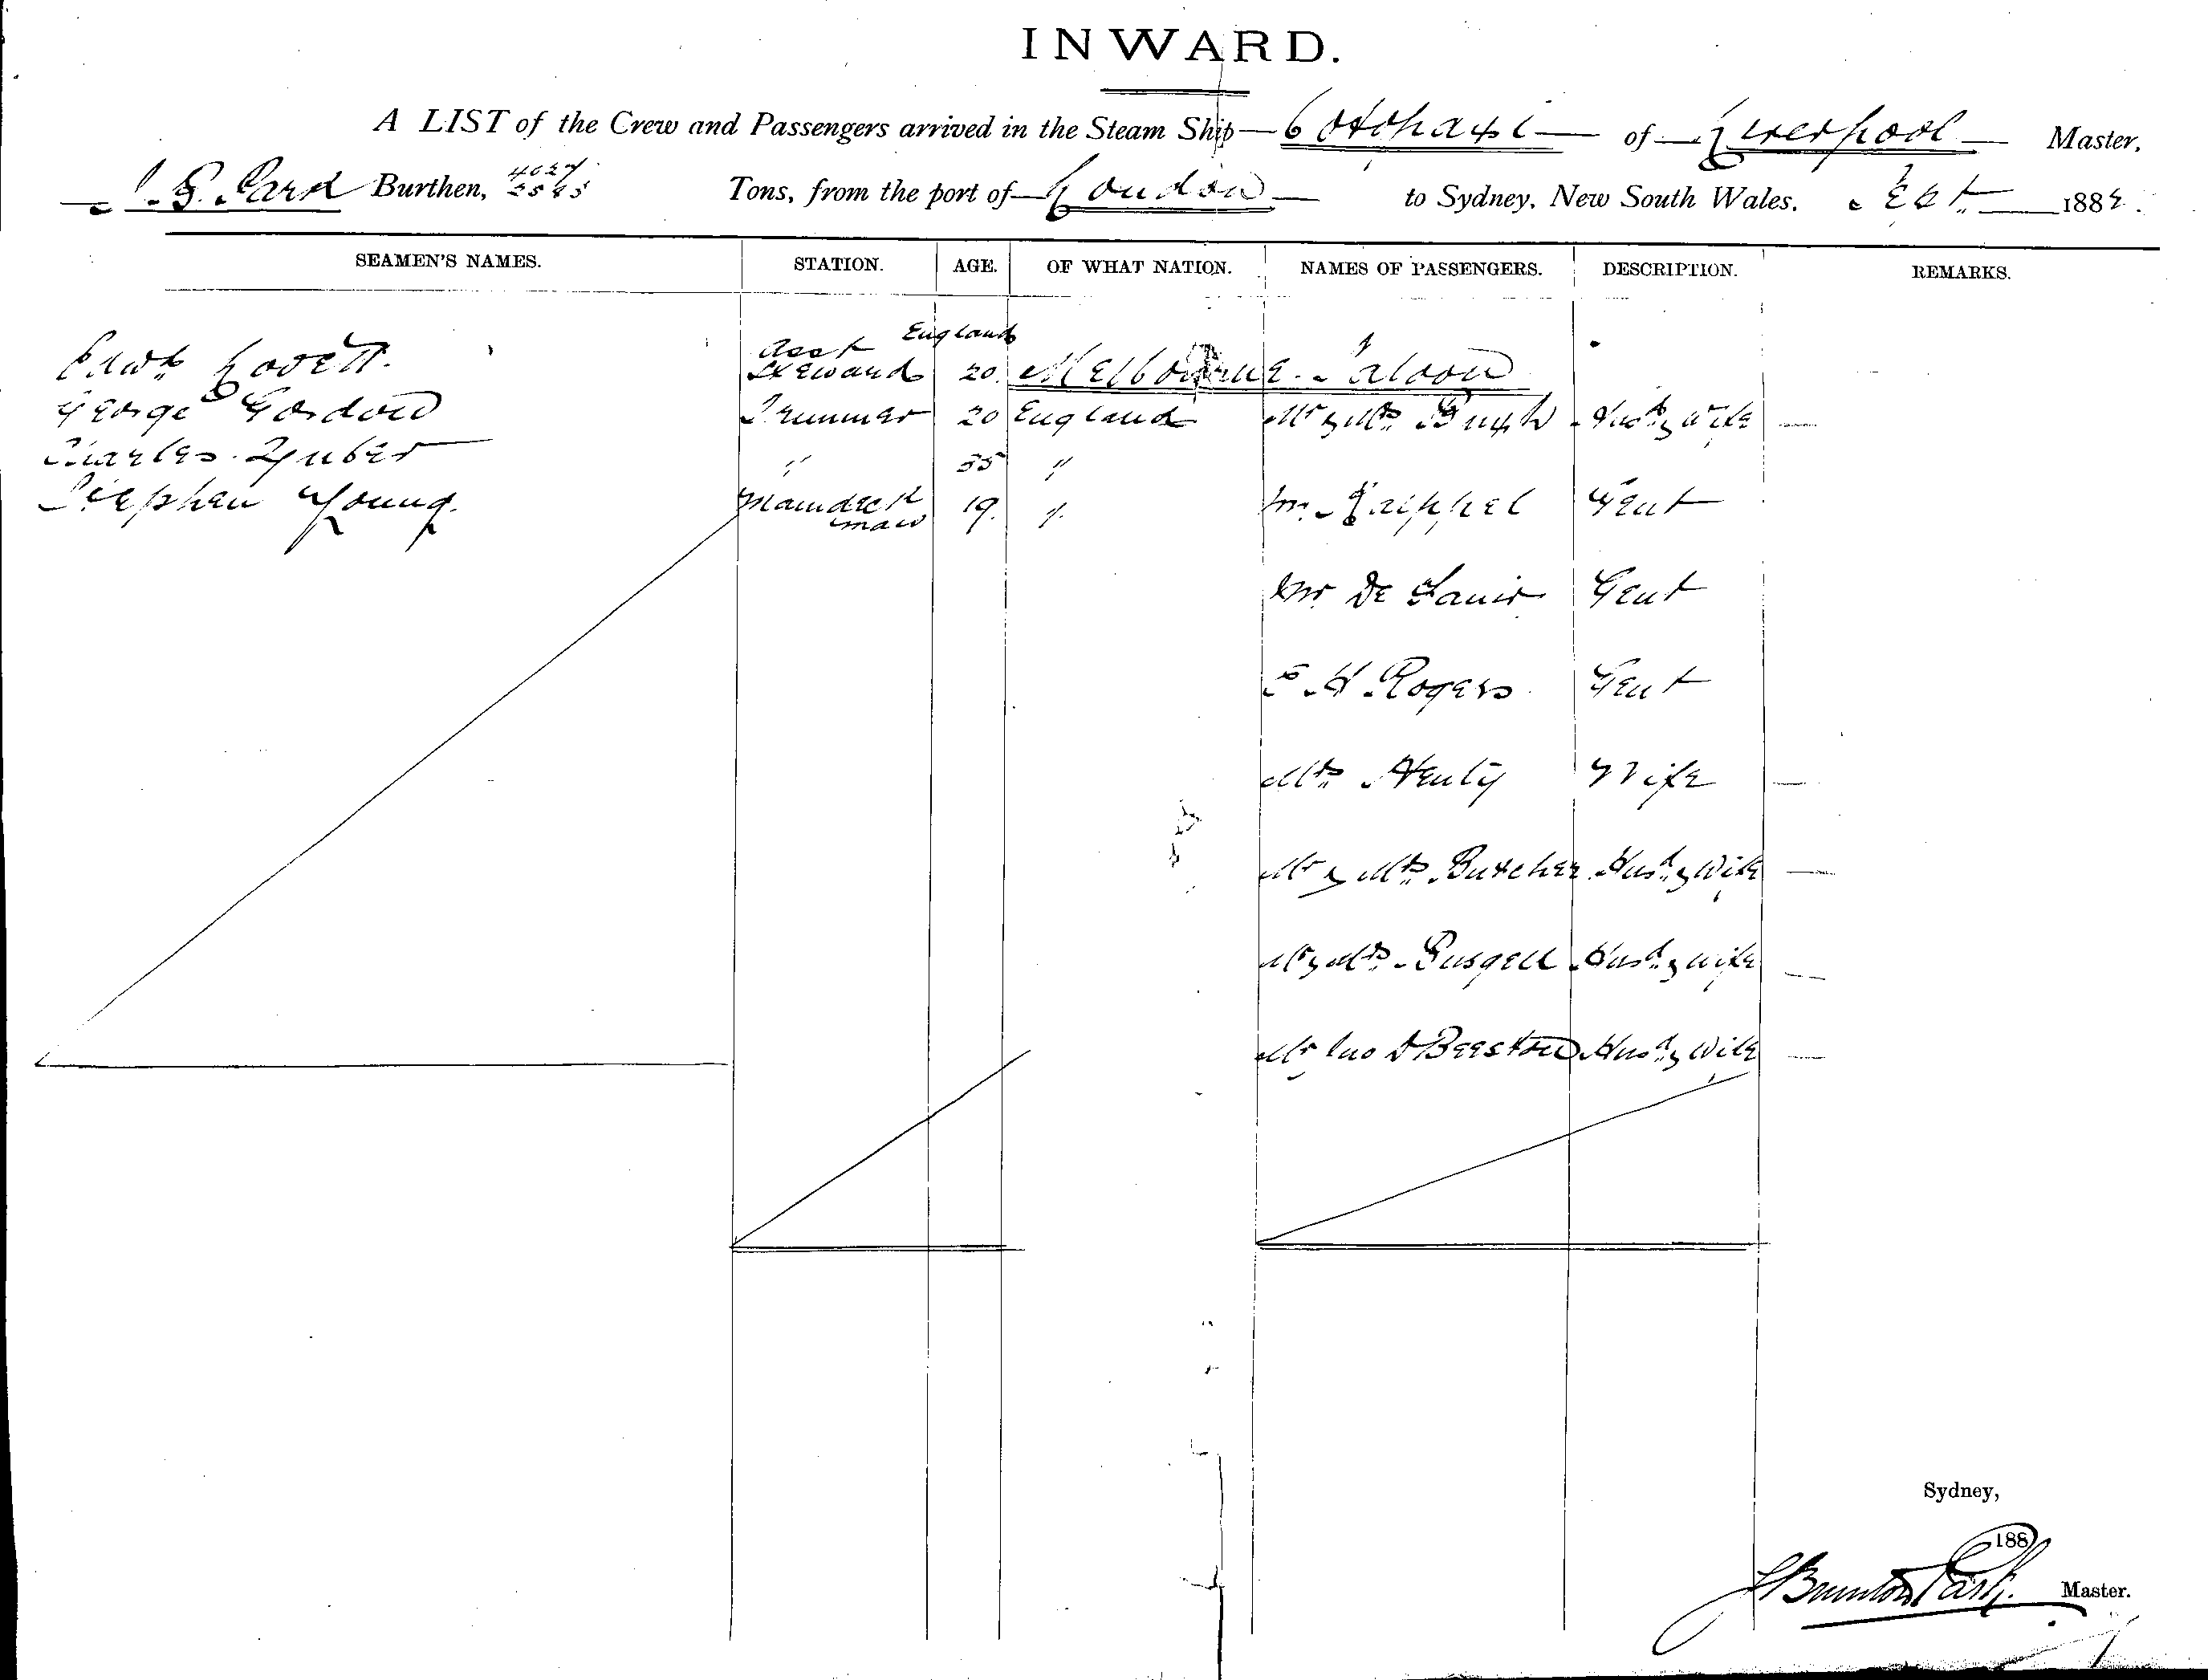 INWARD.
A LIST of the Crew and Passengers arrived in the Steam Ship Cotopaxi of Liverpool Master,
Burthen, 4027 Tons, from the port of London to Sydney, New South Wales. Sept 1882.
SEAMEN'S NAMES. STATION. AGE. OF WHAT NATION. NAMES OF PASSENGERS. DESCRIPTION. REMARKS.
England
Edwd Lovett. Asst Steward 20 Melbourne Saloon
George Gordon Trimmer 20 England Mr & Mrs Husbd & Wife
Charles " 35 "
Stephen Young. Maindeck man 19. " Mr Gent
Mr De Gent
E H Rogers Gent
Mrs Henty Wife
Mr & Mrs Butcher Husbd & Wife
Mr & Mrs Husbd & Wife
Mr Jno Beeston Husbd & Wife
Sydney,
188
J Brunton Park. Master.